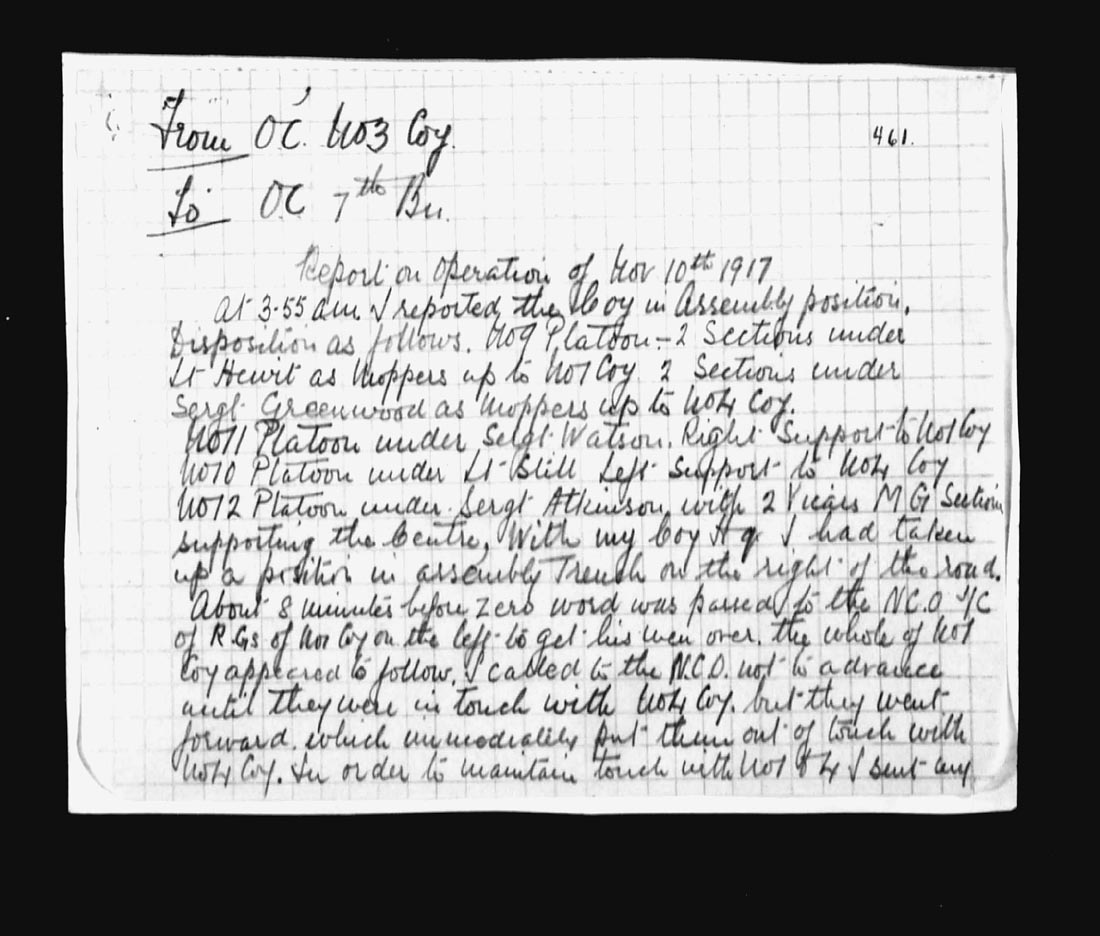 From OC. No3 Coy.
461.
To OC 7th Bn.
Report on Operation of Nov 10th 1917
At 3.55 am. I reported the Coy in Assembly position.
Disposition as follows. No9 Platoon - 2 Sections under
Lt Hewit as Moppers up to No1 Coy. 2 Sections under
Sergt. Greenwood as Moppers up to No4 Coy.
No11 Platoon under Sergt. Watson. Right Support to No1 Coy
No10 Platoon under Lt Still Left Support to No4 Coy
No12 Platoon under Sergt Atkinson, with 2 Vicars M G Sections
supporting the Centre, With my Coy Hq I had taken
up a position in assembly Trench on the right of the road.
About 8 minutes before Zero word was passed to the N.C.O. I/C
of R.Gs of No1 Coy on the left to get his men over. the whole of No1
Coy appeared to follow. I called to the N.C.O. not to advance
until they were in touch with No4 Coy. but they went
forward. which immediately put them out of touch with
No4 Coy. In order to maintain touch with No1 & 4 I sent my